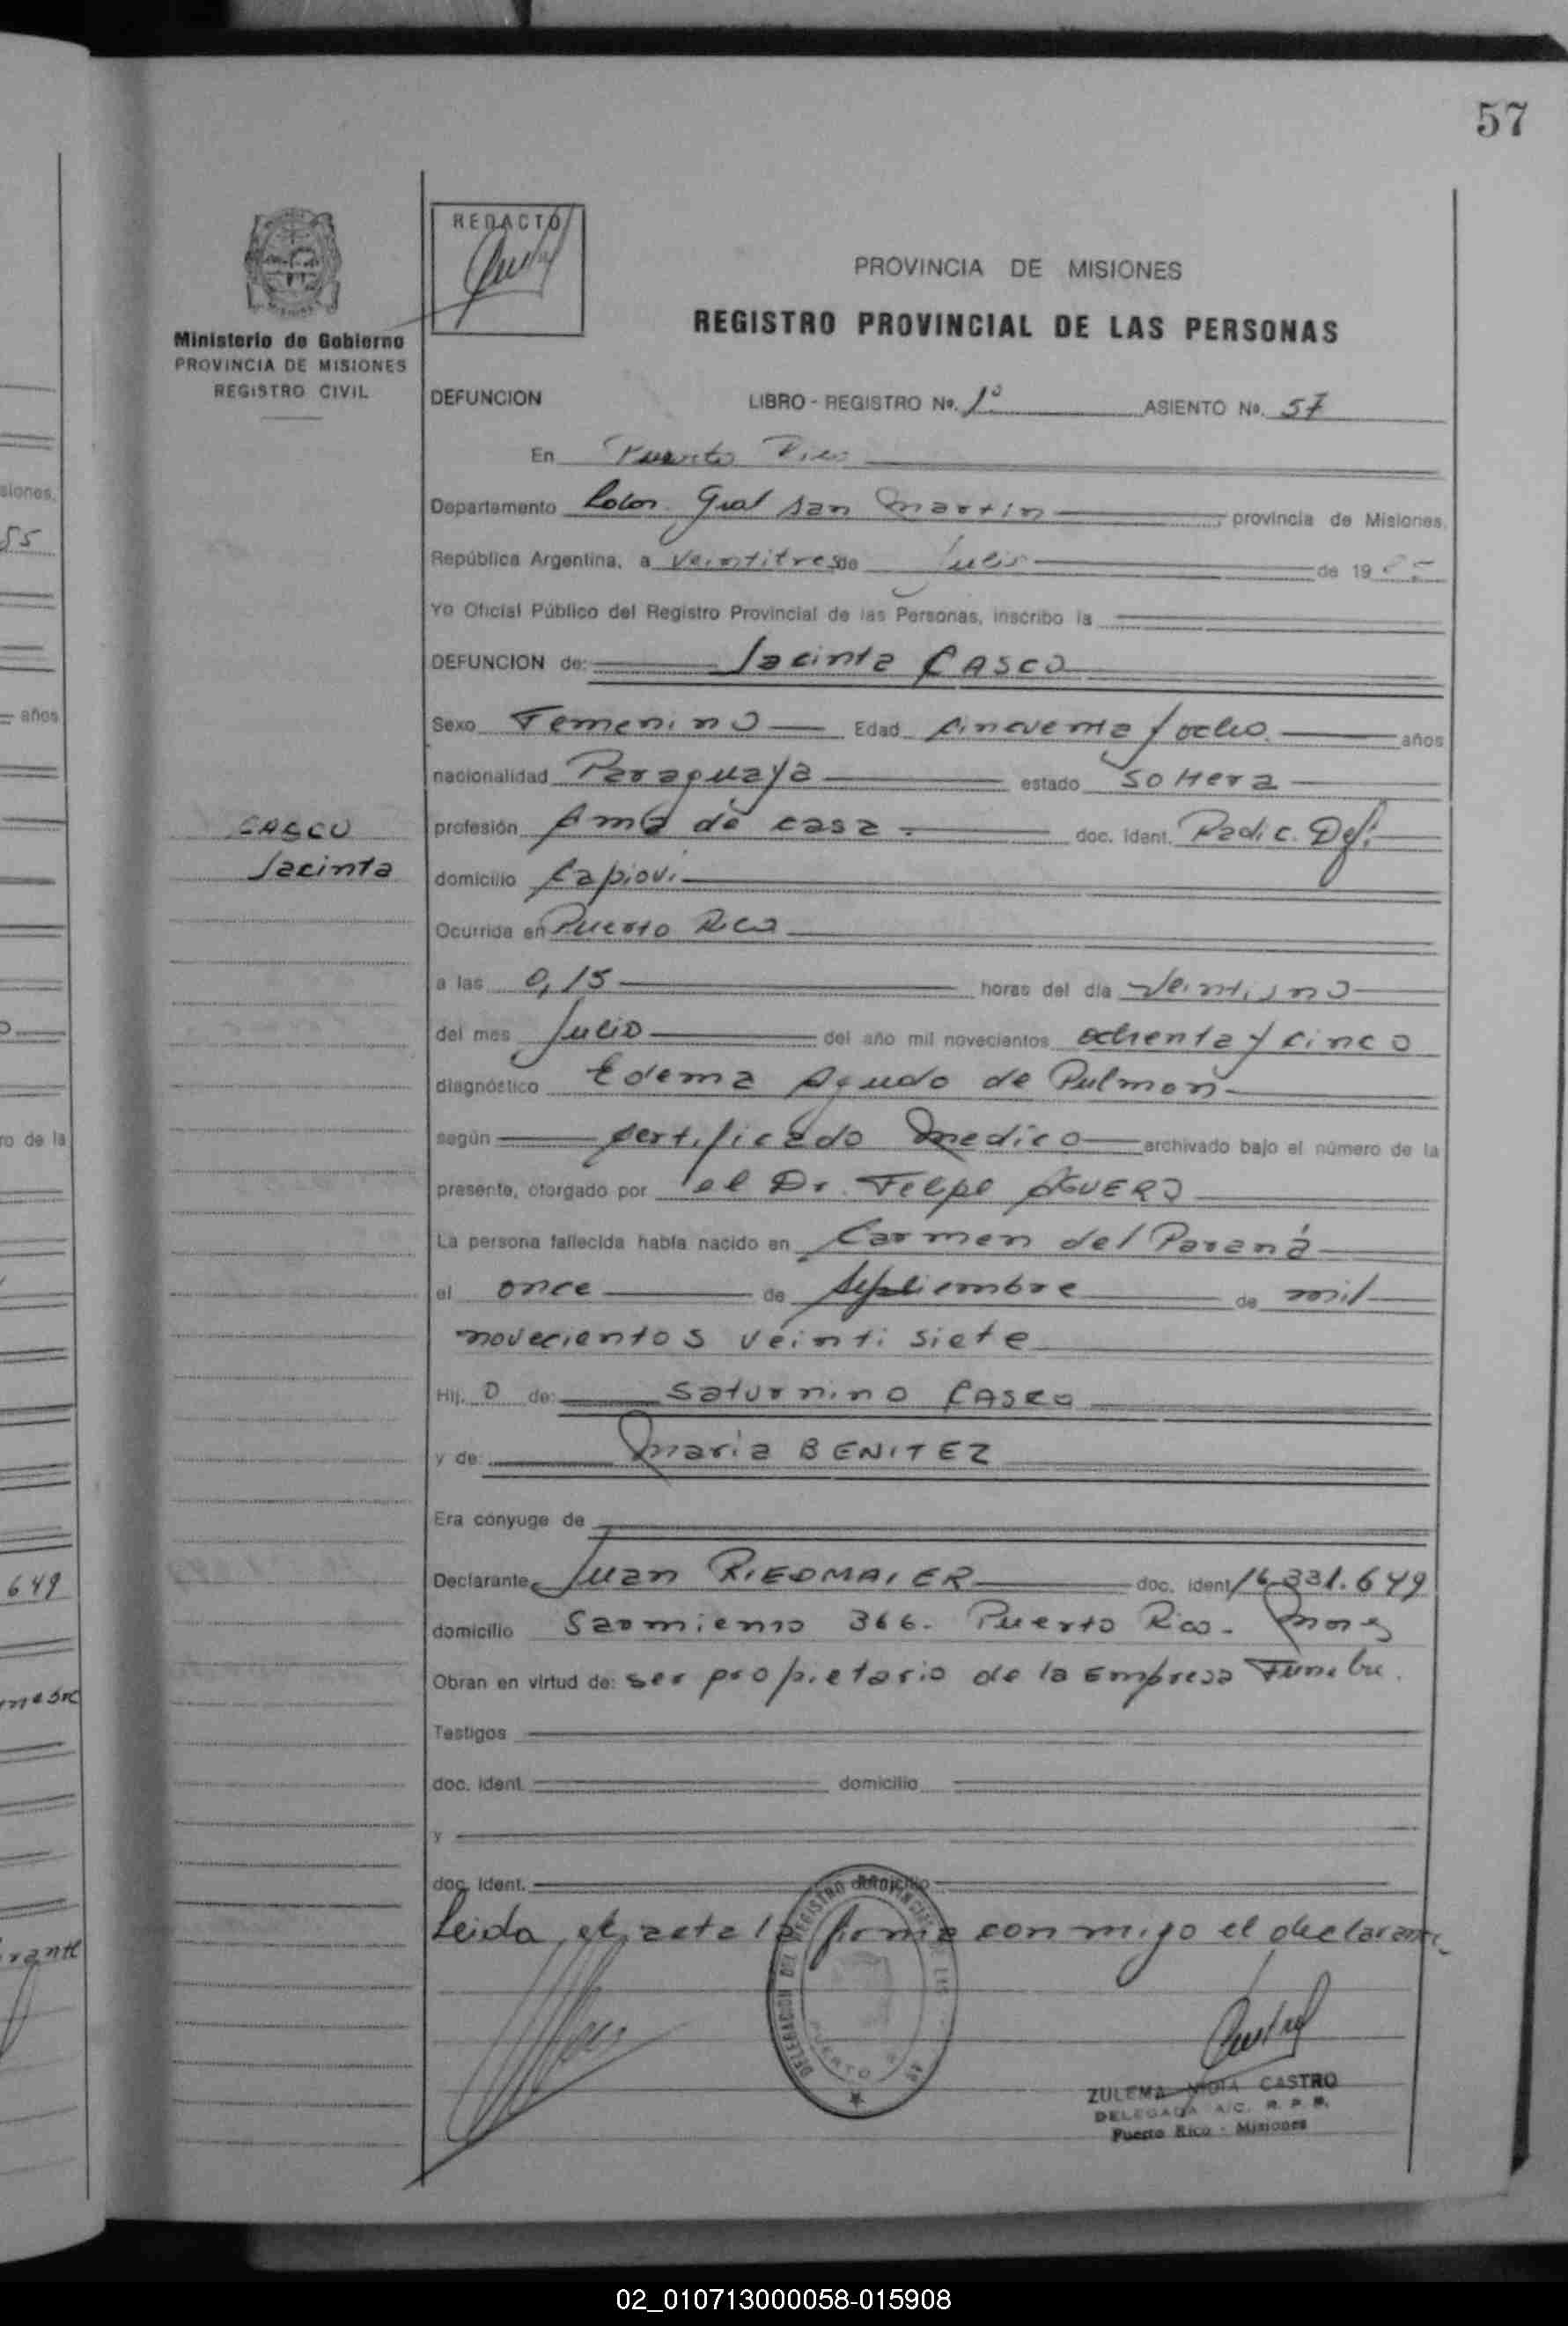 57
REDACTO
PROVINCIA DE MISIONES
REGISTRO PROVINCIAL DE LAS PERSONAS
Ministerio de Gobierno
PROVINCIA DE MISIONES
REGISTRO CIVIL
DEFUNCION LIBRO - REGISTRO No. 1º ASIENTO No. 57
En Puerto Rico
Departamento Ldor. Gral San Martin provincia de Misiones
República Argentina, a veintitres de Julio de 1985
Yo Oficial Público del Registro Provincial de las Personas, inscribo la
DEFUNCION de: Jacinta CASCO
Sexo Femenino Edad cincuenta y ocho años
nacionalidad Paraguaya estado soltera
CASCO
Jacinta
profesión Ama de casa. doc. ident. Radic. Def.
domicilio Capiovi
Ocurrida en Puerto Rico
a las 0,15 horas del día veintiuno
del mes Julio del año mil novecientos ochenta y cinco
diagnóstico Edema Agudo de Pulmon
según certificado Medico archivado bajo el número de la
presente, otorgado por el Dr. Felipe AGUERO
La persona fallecida había nacido en Carmen del Paraná
el once de septiembre de mil
novecientos veinti siete
Hij. a de: Saturnino CASCO
y de: Maria BENITEZ
Era cónyuge de
Declarante Juan RIEDMAIER doc. ident 16.331.649
domicilio Sarmiento 366. Puerto Rico. Mnes
Obran en virtud de: ser propietario de la Empresa Funebre.
Testigos
doc. ident. domicilio
y
doc. ident. domicilio
Leida el acta la firma conmigo el declarante
DELEGACION DEL REGISTRO PROVINCIAL DE LAS
PUERTO
ZULEMA NIDIA CASTRO
DELEGADA A/C. R. P. P.
Puerto Rico - Misiones
siones.
55
años
ro de la
649
rante
02_010713000058-015908